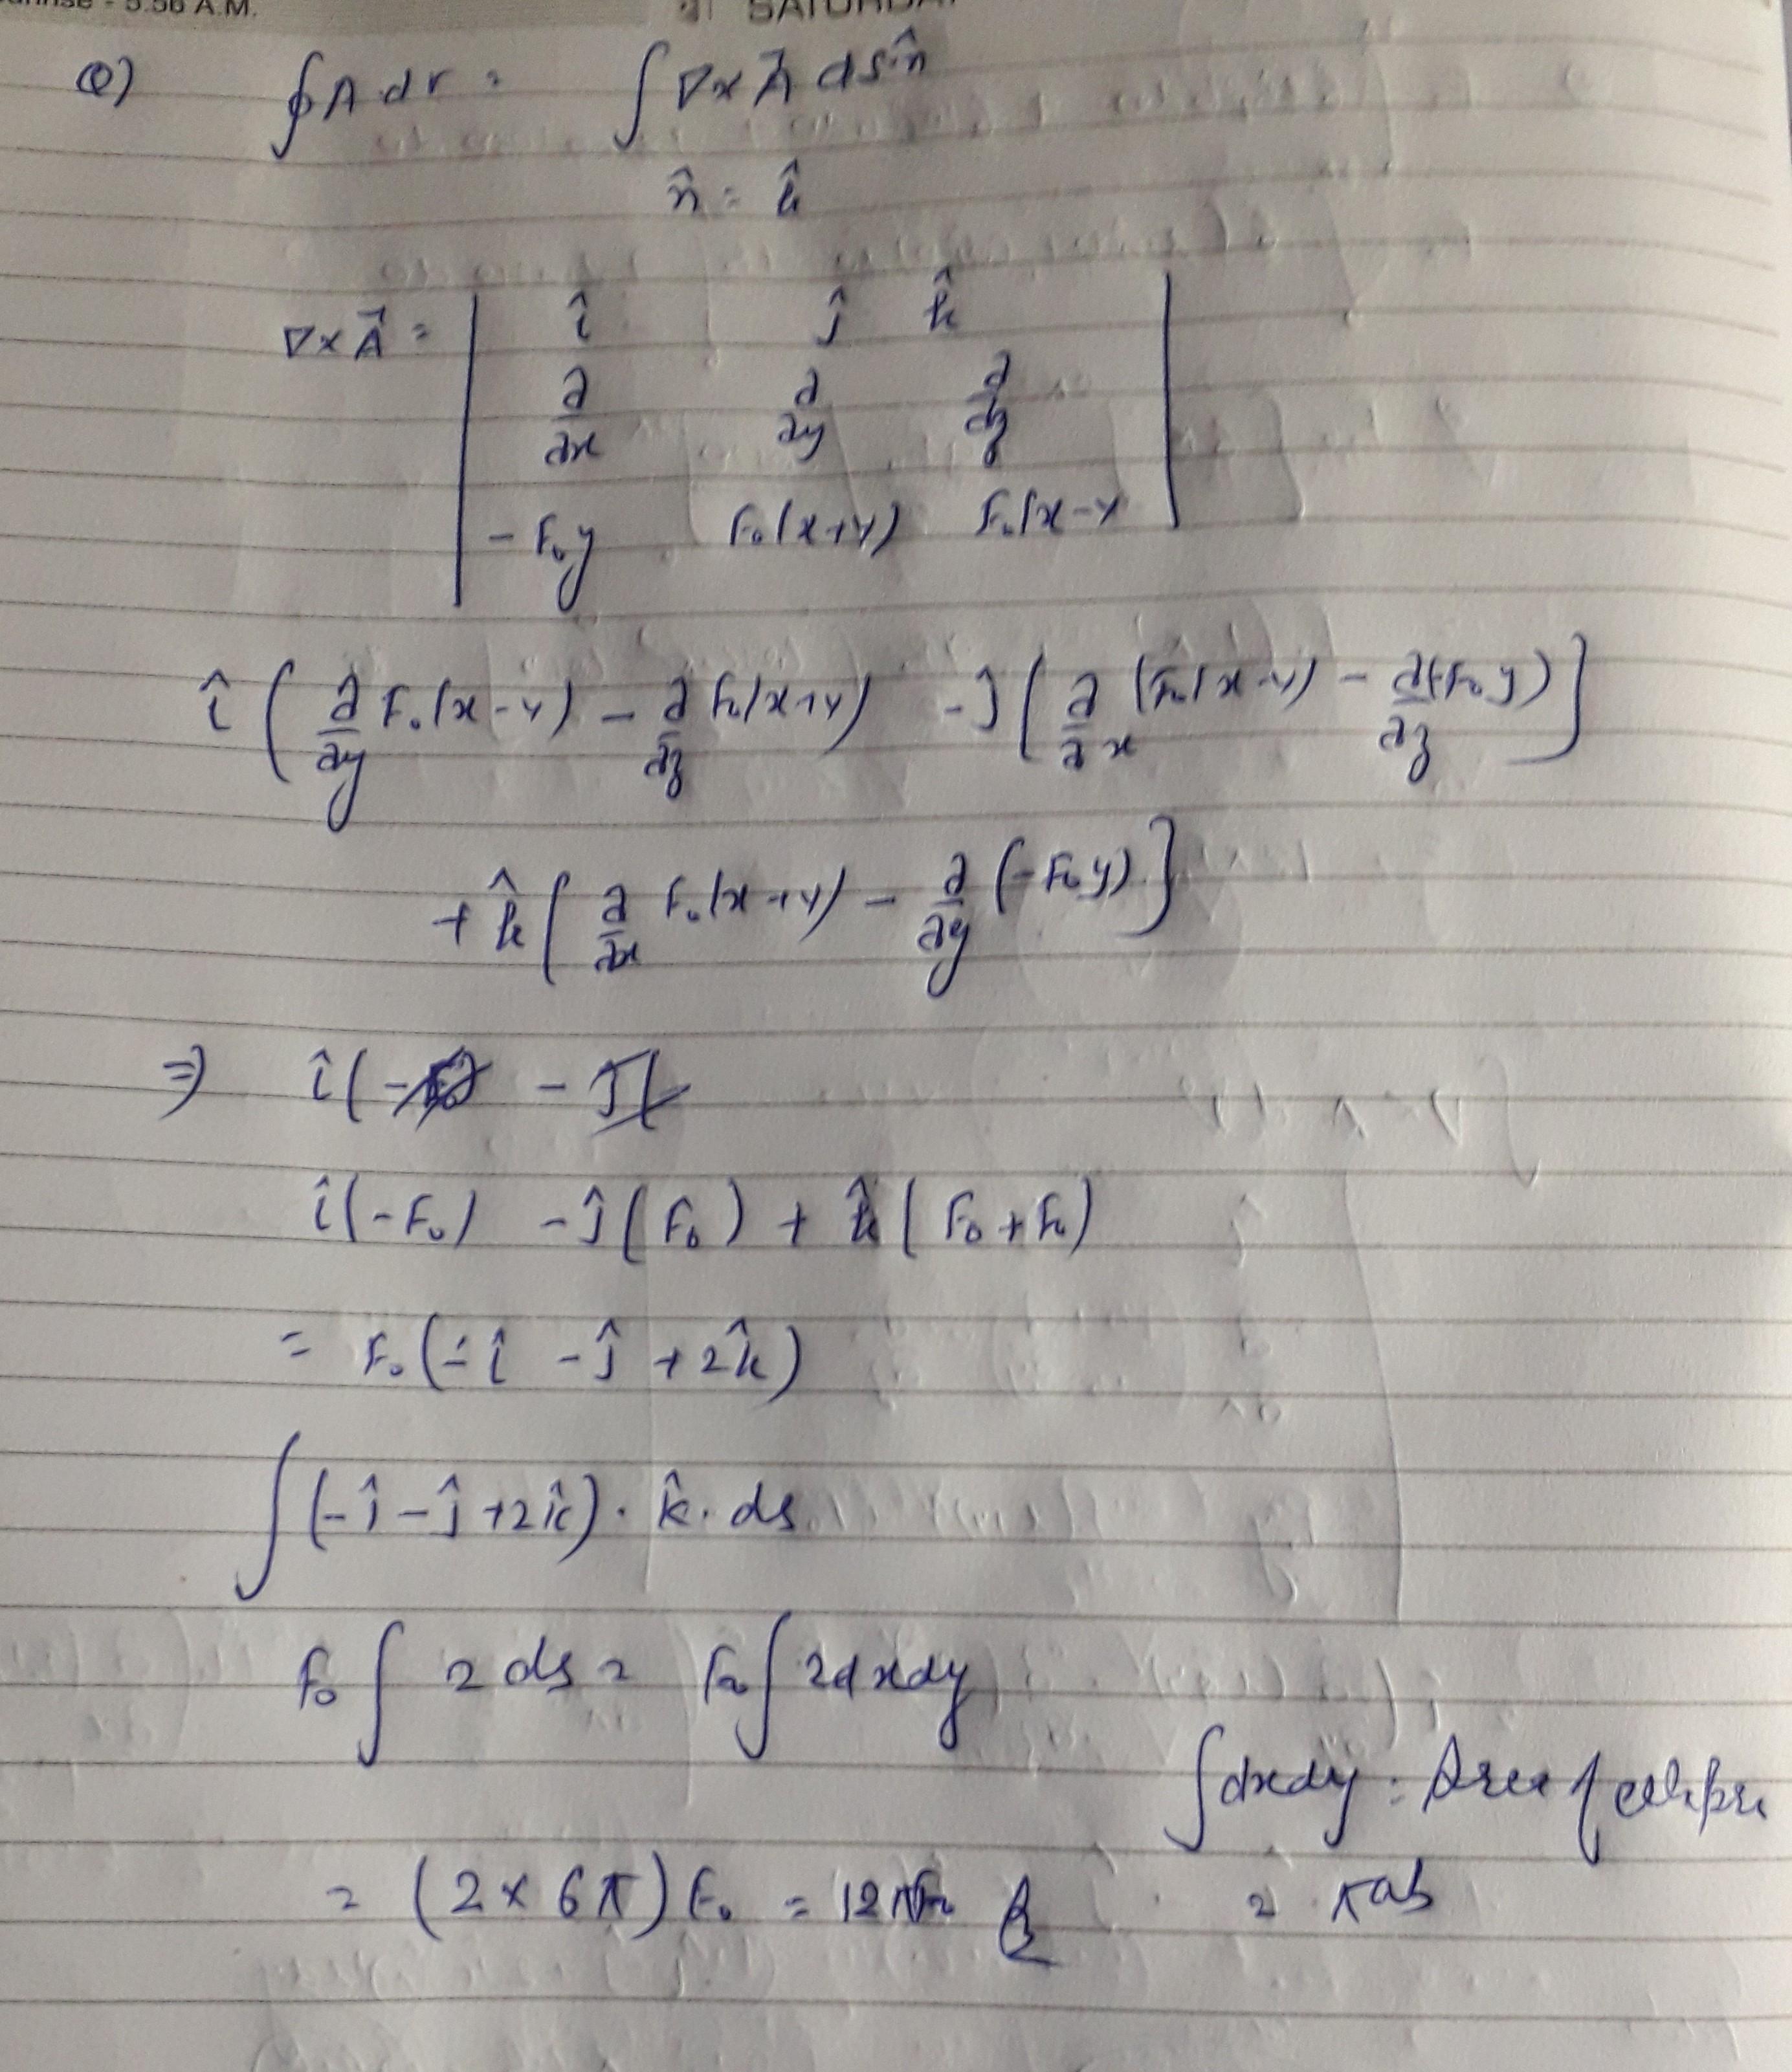 Sunrise - 5.56 A.M.
SATURDAY
Q) ∮A·dr = ∫∇×A⃗ ds·n̂
n̂ = k̂
∇×A⃗ = | î ĵ k̂
∂/∂x ∂/∂y ∂/∂z
-F₀y F₀(x+y) F₀(x-y |
î ( ∂/∂y F₀(x-y) - ∂/∂z F₀(x+y) -ĵ ( ∂/∂x (F₀(x-y) - ∂(-F₀y)/∂z )
+ k̂ ( ∂/∂x F₀(x+y) - ∂/∂y (-F₀y) }
⇒ î(-
î(-F₀) -ĵ(F₀) + k̂(F₀+F₀)
= F₀(-î -ĵ +2k̂)
∫(-î-ĵ+2k̂)·k̂·ds
F₀∫2ds = F₀∫2dxdy
∫dxdy = Area of ellipse
= (2×6π)F₀ = 12πF₀
= πab